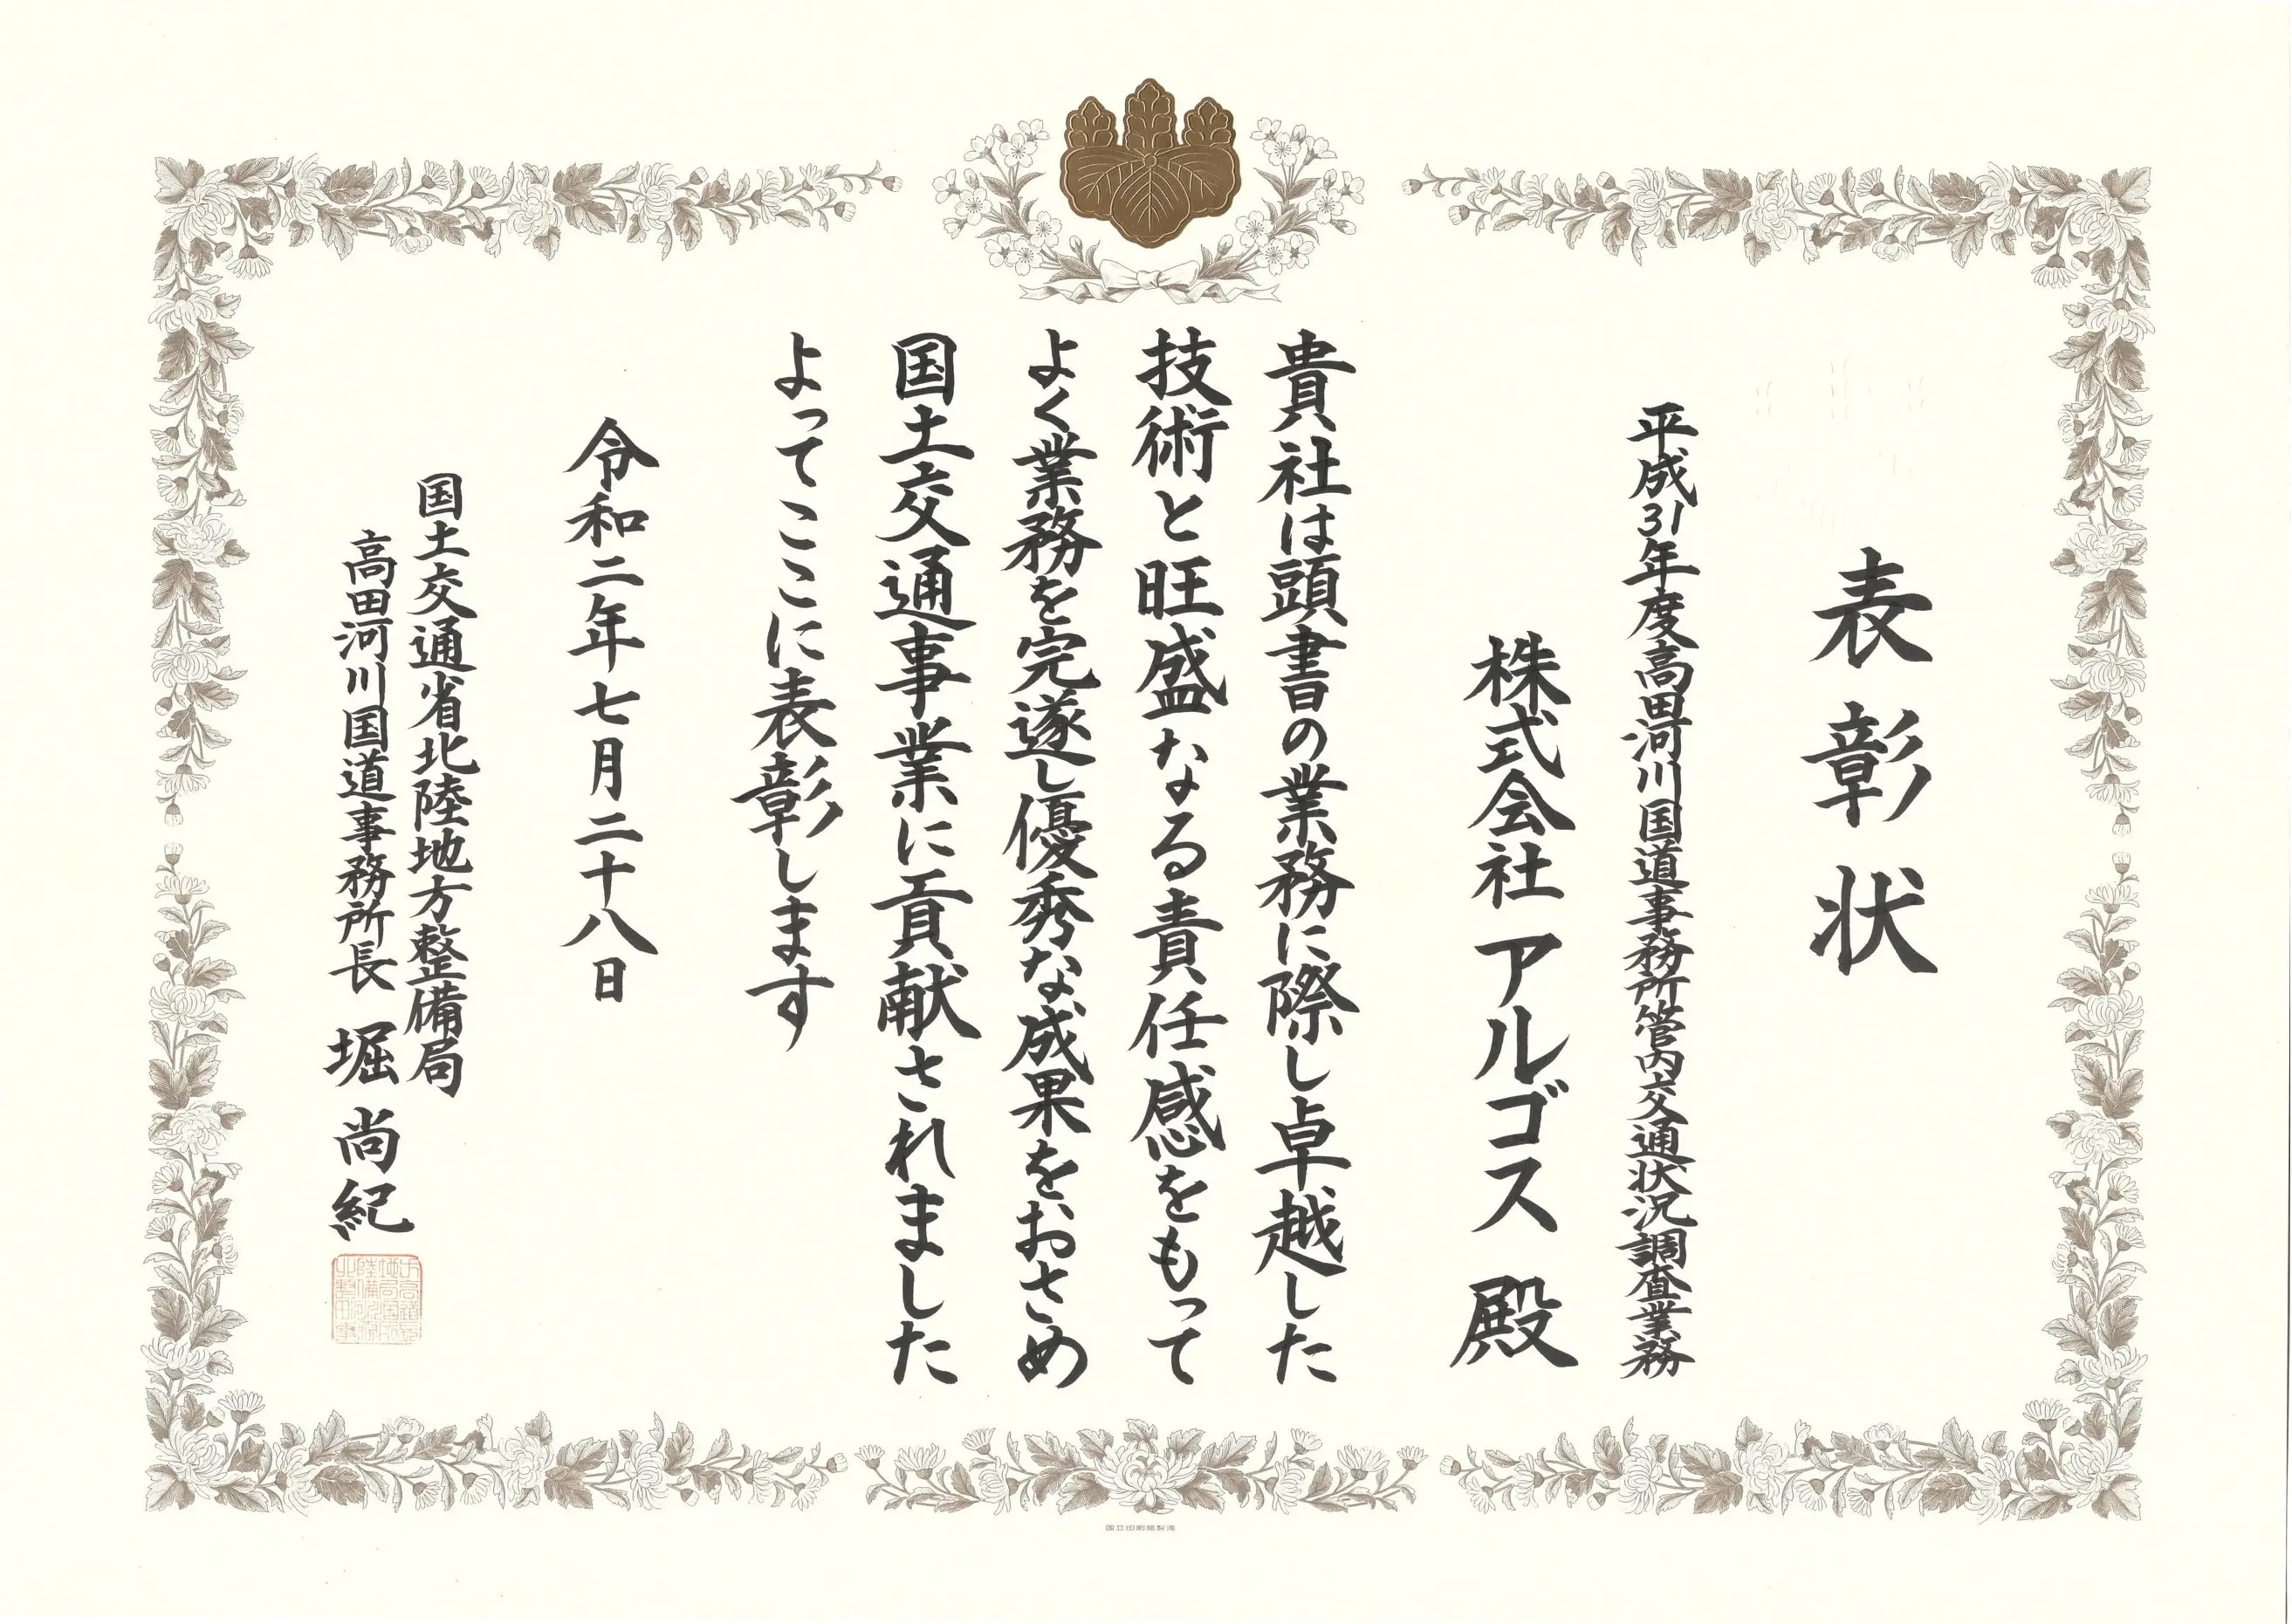 表彰状
平成31年度高田河川国道事務所管内交通状況調査業務
株式会社 アルゴス 殿
貴社は頭書の業務に際し卓越した
技術と旺盛なる責任感をもって
よく業務を完遂し優秀な成果をおさめ
国土交通事業に貢献されました
よってここに表彰します
令和二年七月二十八日
国土交通省北陸地方整備局
高田河川国道事務所長 堀 尚紀